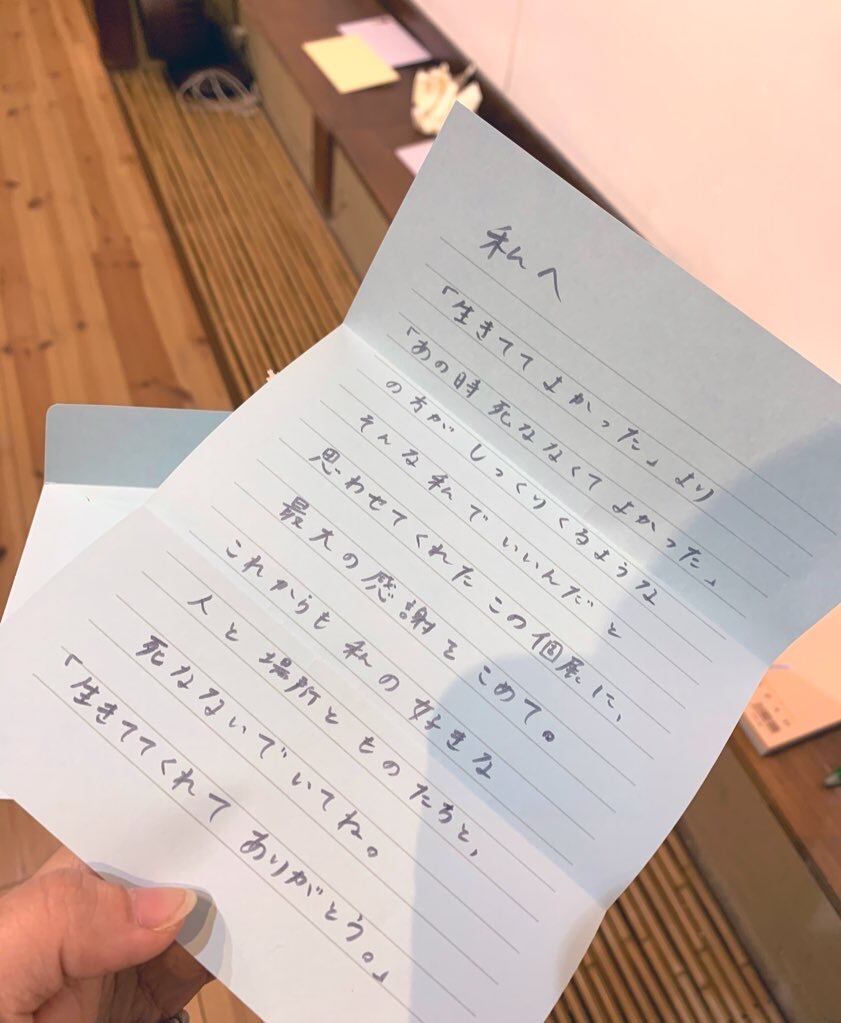 私へ
「生きててよかった」より
「あの時死ななくてよかった」
の方がしっくりくるような
そんな私でいいんだと
思わせてくれたこの個展に、
最大の感謝をこめて。
これからも私の好きな
人と場所とものたちと、
死なないでいてね。
「生きててくれてありがとう。」